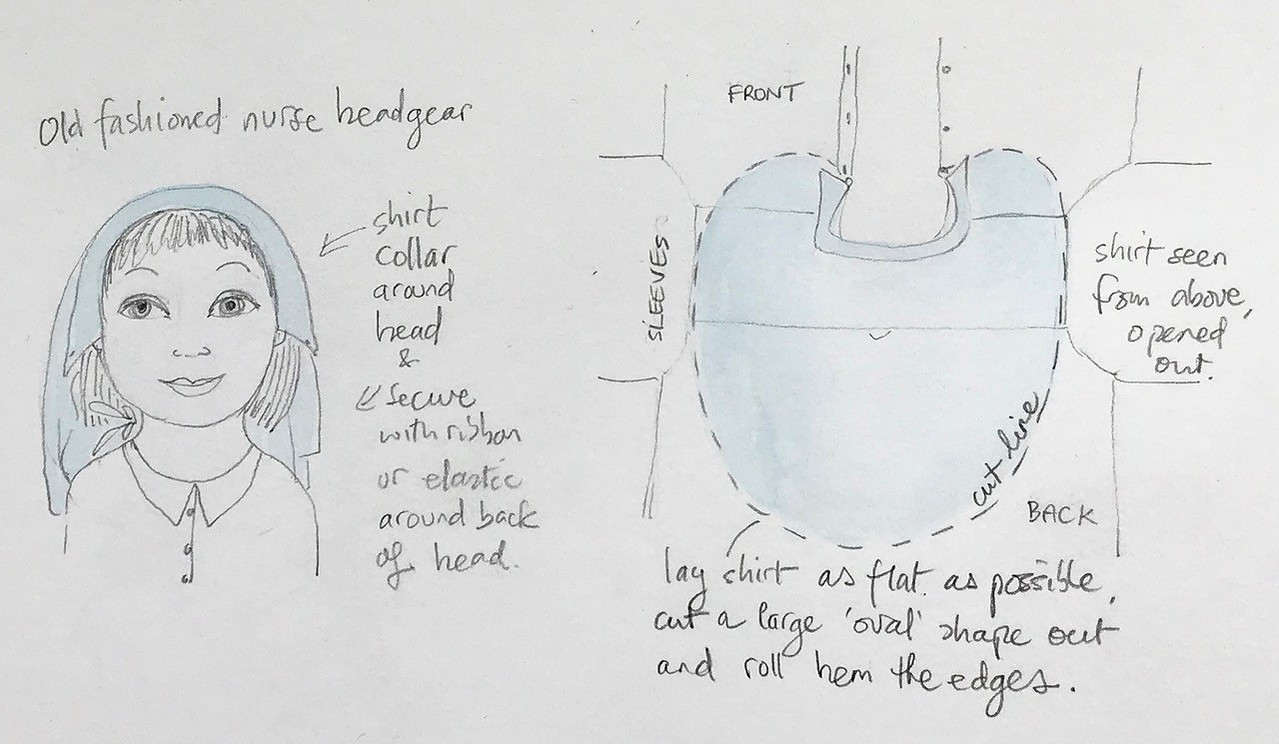 Old fashioned nurse headgear
shirt
collar
around
head
&
secure
with ribbon
or elastic
around back
of head.
FRONT
SLEEVES
shirt seen
from above,
opened
out.
cut line
BACK
lay shirt as flat as possible,
cut a large 'oval' shape out
and roll hem the edges.